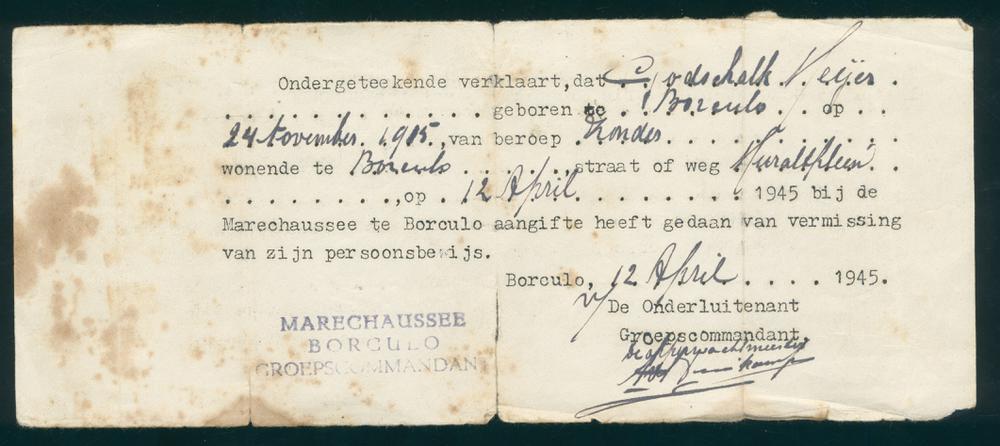 Ondergeteekende verklaart, dat Godschalk Meijer .
. . . . . . . . . . . . . . . geboren te . Borculo . . op . .
24 November. 1905., van beroep . Zonder. . . . . . . . .
wonende te Borculo . . . . . ., straat of weg Muraltplein . .
. . . . . . . . ., op . 12 April. . . . . . . . . 1945 bij de
Marechaussee te Borculo aangifte heeft gedaan van vermissing
van zijn persoonsbewijs.
Borculo, 12 April . . . . 1945.
De Onderluitenant
Groepscommandant,
De Opperwachtmeester
MARECHAUSSEE
BORCULO
GROEPSCOMMANDANT